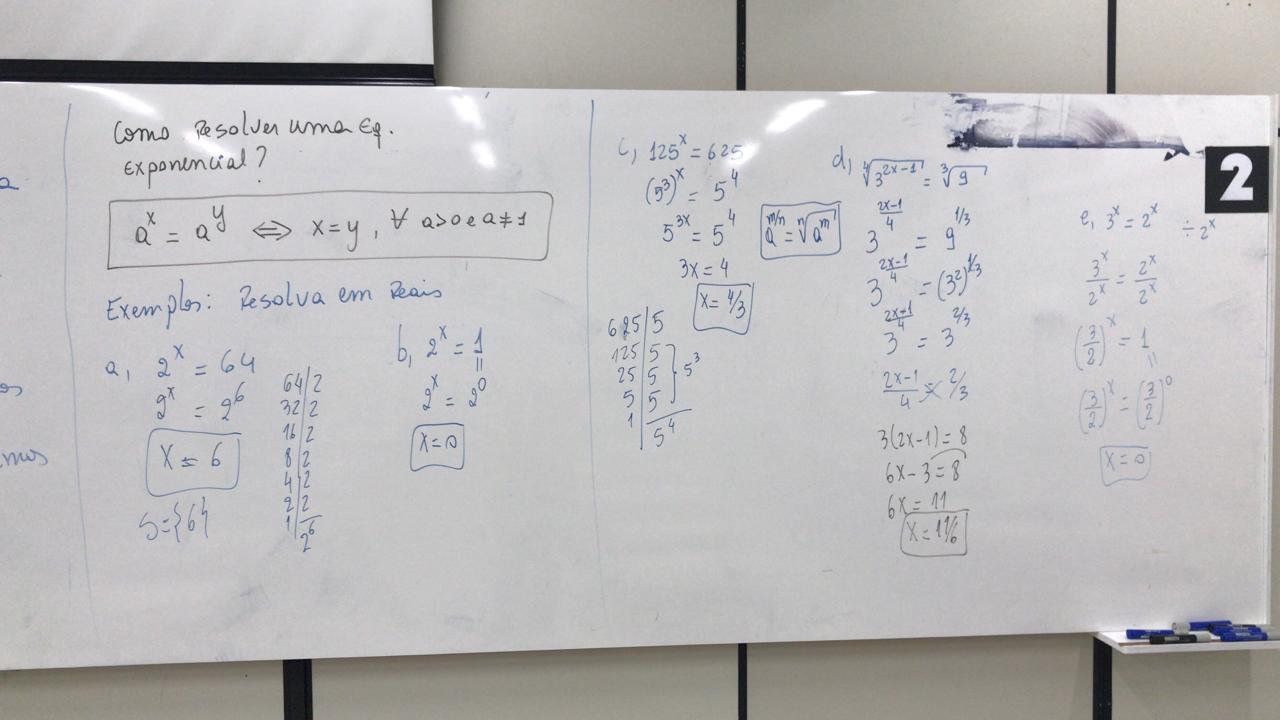 Como Resolver uma Eq.
exponencial?
a^x = a^y ⇔ x = y, ∀ a>0 e a≠1
Exemplos: Resolva em Reais
a, 2^x = 64
2^x = 2^6
x = 6
S={6}
64|2
32|2
16|2
8|2
4|2
2|2
1|2^6
b, 2^x = 1
=
2^x = 2^0
x=0
c, 125^x = 625
(5^3)^x = 5^4
5^3x = 5^4
3x = 4
x = 4/3
a^m/n = ⁿ√a^m
625|5
125|5
25|5 } 5^3
5|5
1|5^4
d, ∜3^2x-1 = ∛9
3^(2x-1)/4 = 9^1/3
3^(2x-1)/4 = (3^2)^1/3
3^(2x-1)/4 = 3^2/3
(2x-1)/4 = 2/3
3(2x-1) = 8
6x-3 = 8
6x = 11
x = 11/6
e, 3^x = 2^x ÷ 2^x
3^x/2^x = 2^x/2^x
(3/2)^x = 1
=
(3/2)^x = (3/2)^0
x = 0
2
a
os
mos